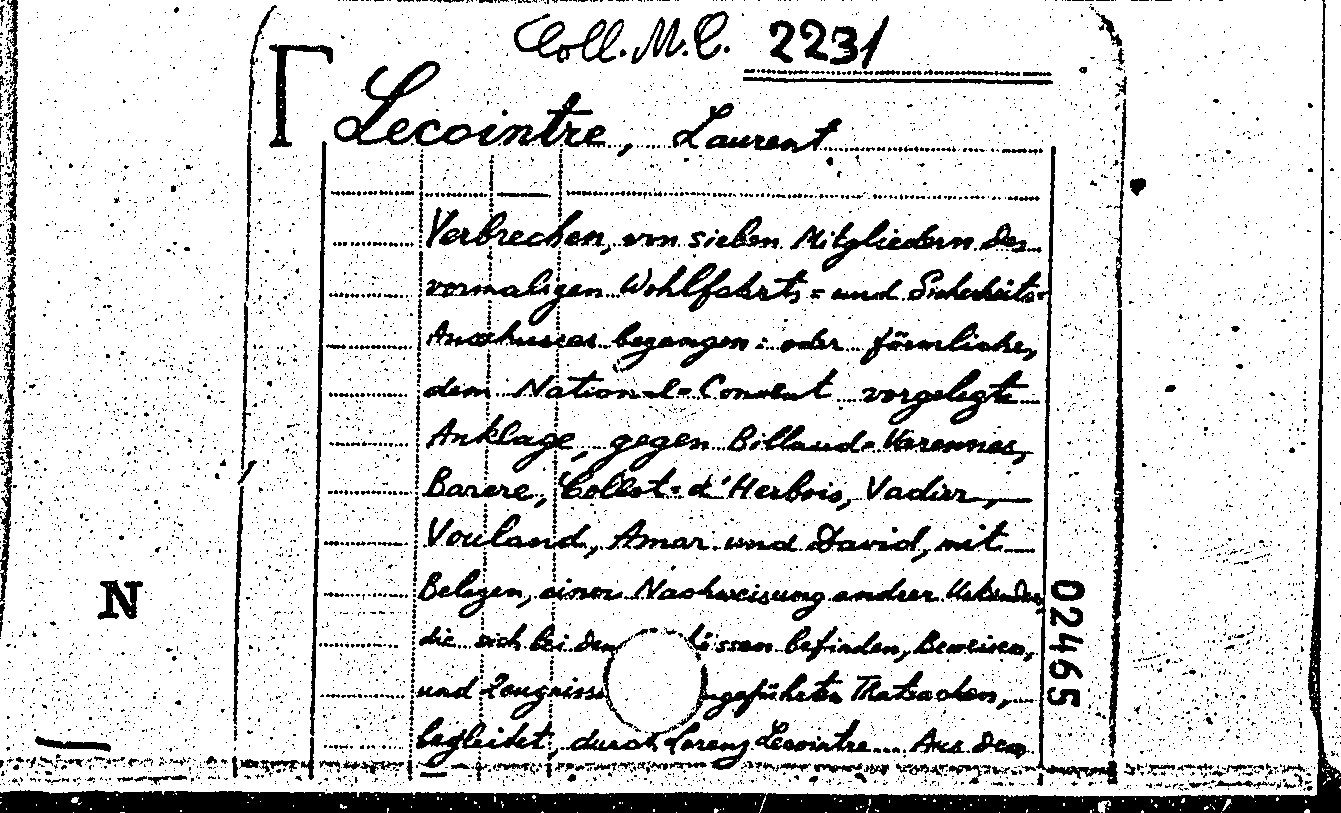 Coll. M. C. 2231
Lecointre, Laurent
Verbrechen, von sieben Mitgliedern des
vormaligen Wohlfahrts= und Sicherheits=
Ausschusses begangen: oder förmliche,
dem National=Convent vorgelegte
Anklage, gegen Billaud=Varennes,
Barere, Collot=d'Herbois, Vadier,
Vouland, Amar und David, mit
Belegen, einer Nachweisung andrer Urkunden,
die sich bei den üssen befinden, Beweisen,
und Zeugnisse ngeführten Thatsachen,
begleitet, durch Lorenz Lecointre... Aus dem
N
02465